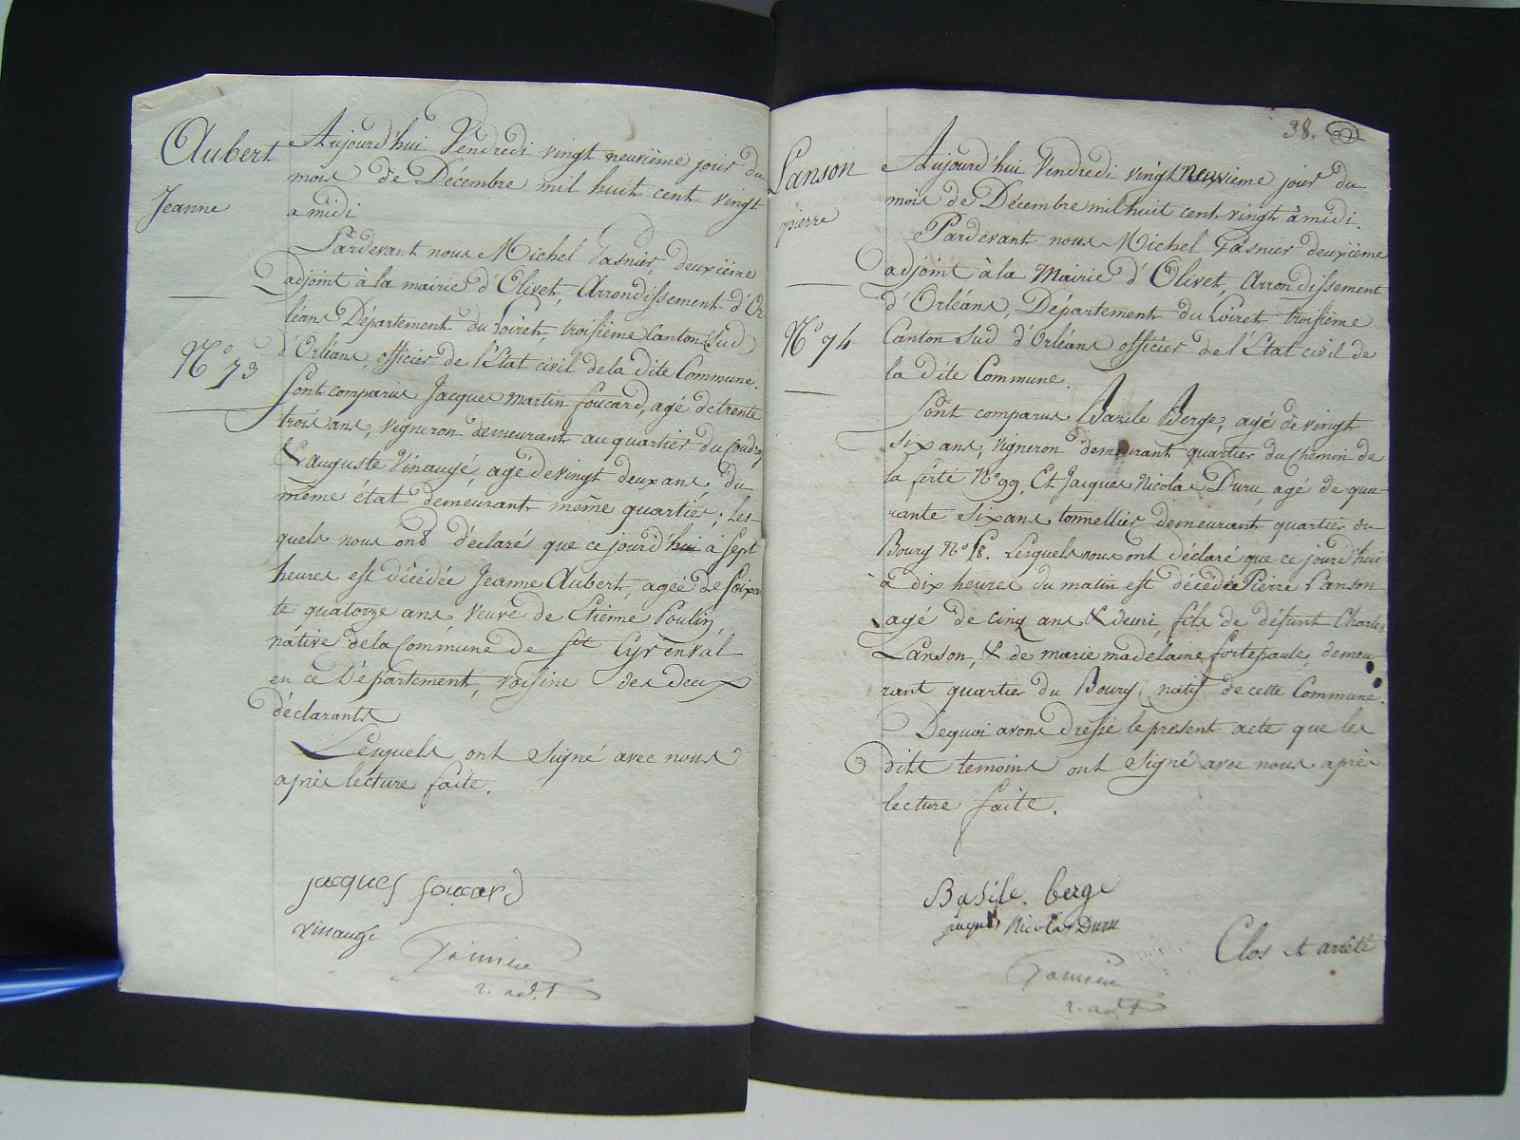 Aubert
Jeanne
N° 73
Aujourd'hui Vendredi vingt neuvième jour du
mois de Décembre mil huit cent vingt
a midi
Pardevant nous Michel Gasnier, deuxième
adjoint à la mairie d'Olivet, Arrondissement d'Or
léans Département du Loiret, troisième Canton Sud
d'Orléans, officier de l'État civil de la dite Commune.
Sont comparus Jacques Martin foucard, agé de trente
trois ans, vigneron demeurant au quartier du Coudray
& auguste Vinaugé agé de vingt deux ans, du
même état demeurant même quartier; les-
quels nous ond déclaré que ce jourd'hui à sept
heures est décédée Jeanne Aubert, agée de soixan
te quatorze ans veuve de Etienne Poulin,
native de la Commune de St Cyr en val
en ce Département, voisine des deux
déclarants
Lesquels ont signé avec nous
après lecture faite.
jacques foucard
vinauge
2. adj.t
38.
Lanson
pierre
N° 74
Aujourd'hui Vendredi vingt neuvieme jour du
mois de Décembre mil huit cent vingt à midi.
Pardevant nous Michel Gasnier deuxième
adjoint à la Mairie d'Olivet, Arrondissement
d'Orléans, Département du Loiret troisième
Canton Sud d'Orléans officier de l'État civil de
la dite Commune.
Sont comparus Bazile Berge, agé de vingt
six ans, vigneron demeurant quartier du Chemin de
la ferté N° 99. Et Jacques Nicolas Duru agé de qua-
rante six ans tonnellier demeurant quartier du
Boury N° 58. Lesquels nous ont déclaré que ce jourd'hui
à dix heures du matin est décédée Pierre Lanson
agé de cinq ans & demi, fils de défunt Charles
Lanson, & de marie madelaine fortepaule, demeu
rant quartier du Boury, natif de cette Commune.
Dequoi avons dressé le present acte que les
dits temoins ont signé avec nous après
lecture faite.
Basile. berge
jaques Nicolas Duru
2. adj.t
Clos et arrêté